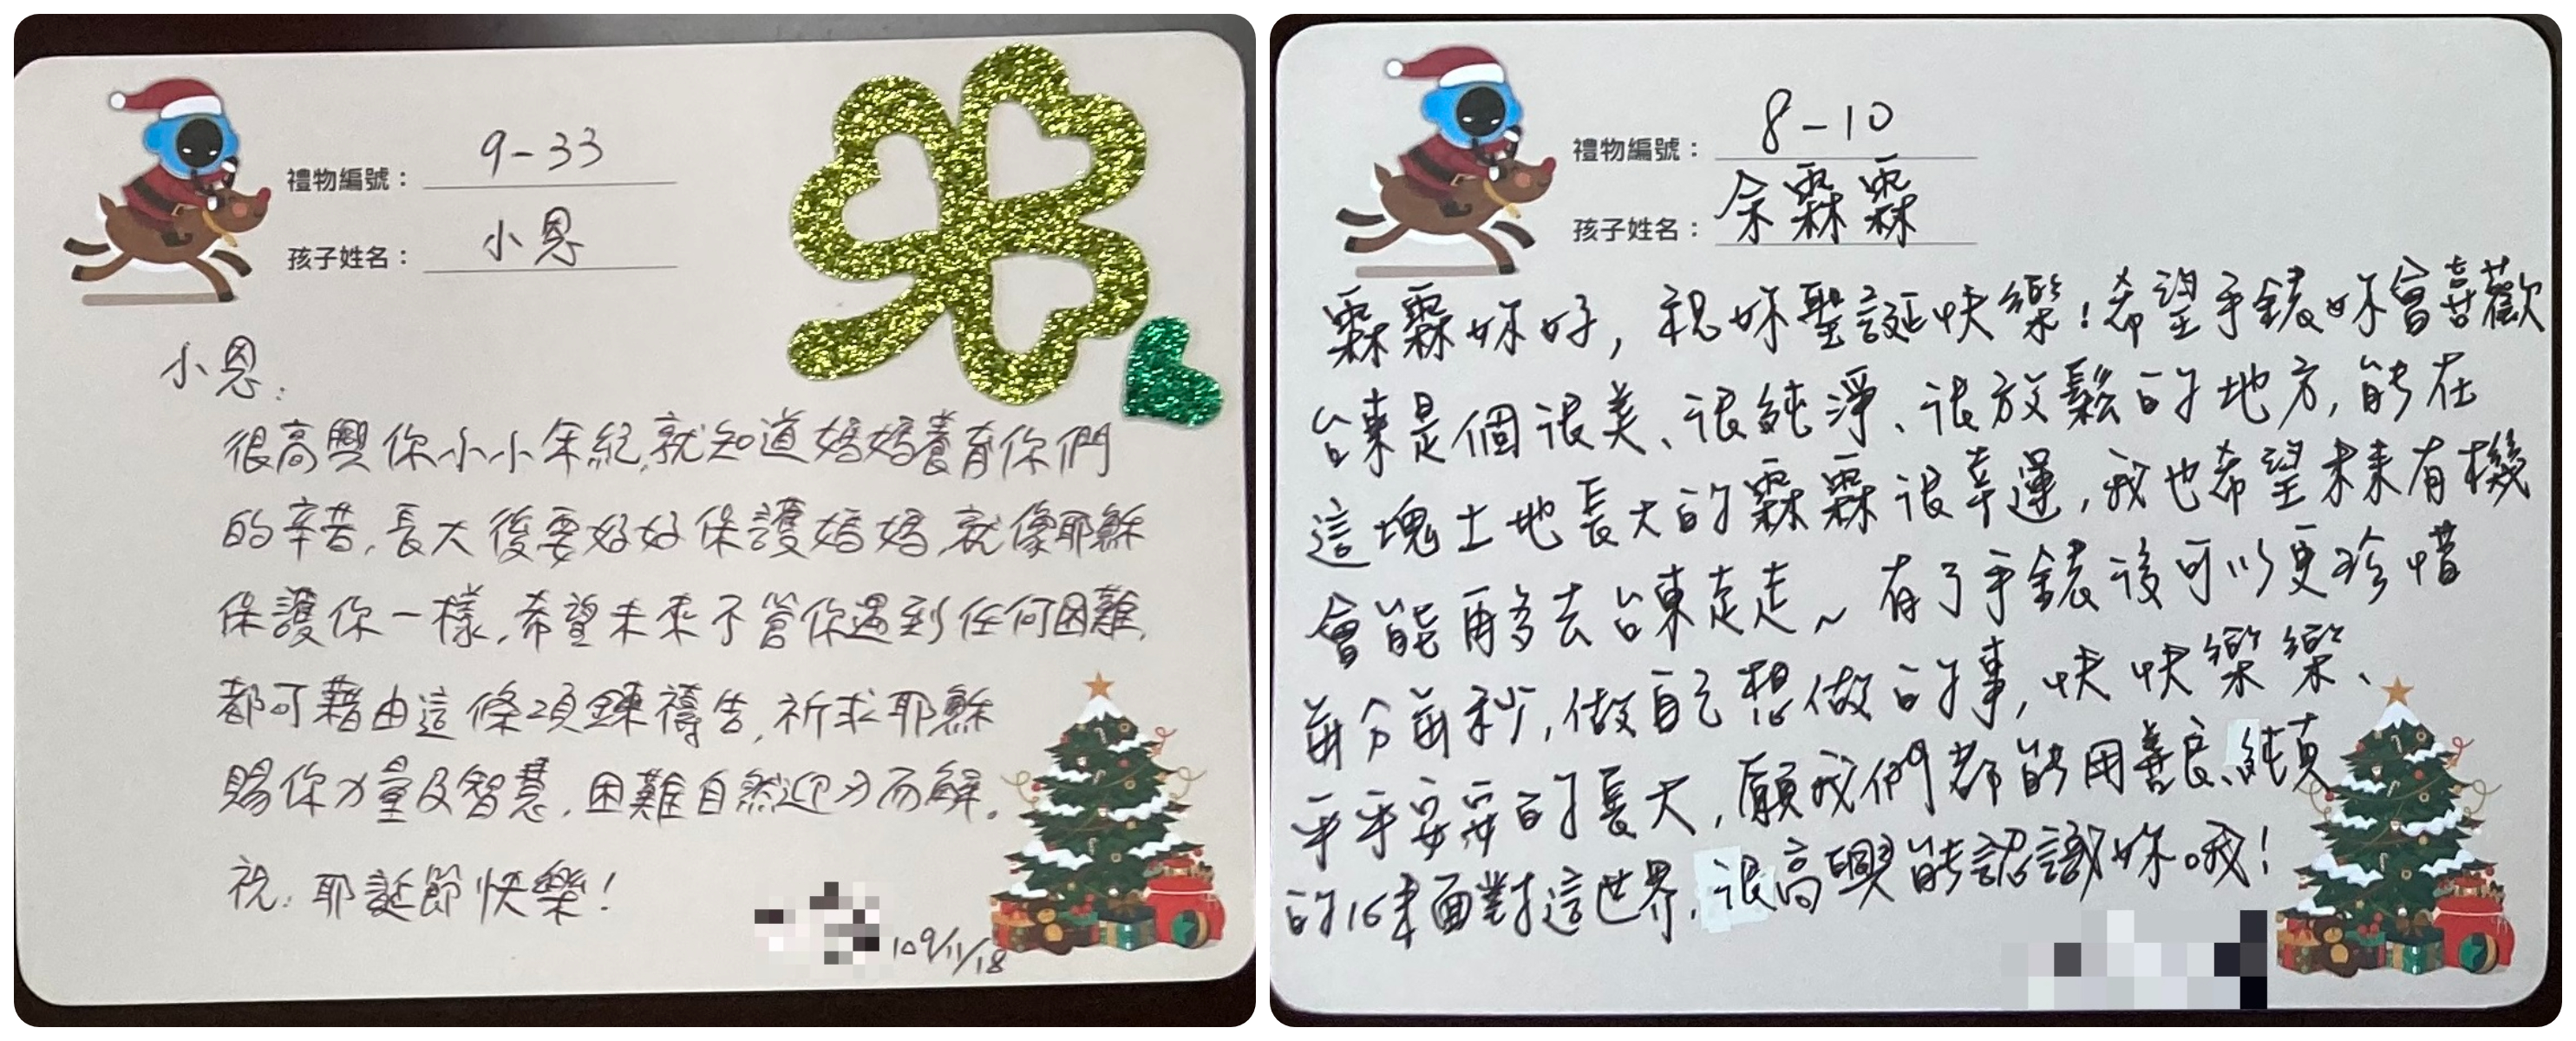 禮物編號： 9-33
孩子姓名： 小恩
小恩:
很高興你小小年紀,就知道媽媽養育你們
的辛苦,長大後要好好保護媽媽,就像耶穌
保護你一樣,希望未來不管你遇到任何困難,
都可藉由這條項鍊禱告,祈求耶穌
賜你力量及智慧,困難自然迎刃而解。
祝:耶誕節快樂!
109/11/18
禮物編號： 8-10
孩子姓名： 余霖霖
霖霖妳好,祝妳聖誕快樂!希望手錶妳會喜歡
台東是個很美、很純淨、很放鬆的地方,能在
這塊土地長大的霖霖很幸運,我也希望未來有機
會能再多去台東走走~有了手錶後可以更珍惜
每分每秒,做自己想做的事,快快樂樂、
平平安安的長大,願我們都能用善良、純真
的心來面對這世界,很高興能認識妳哦!